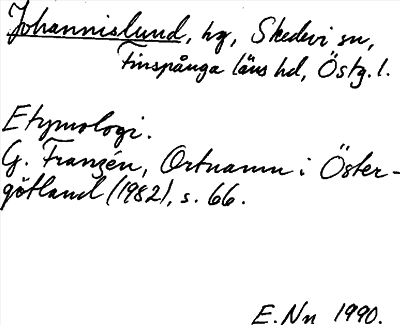 Johannislund, hg, Skedevi sn,
Finspånga läns hd, Östg. l.
Etymologi.
G. Franzén, Ortnamn i Öster-
götland (1982), s. 66.
E. Nn 1990.